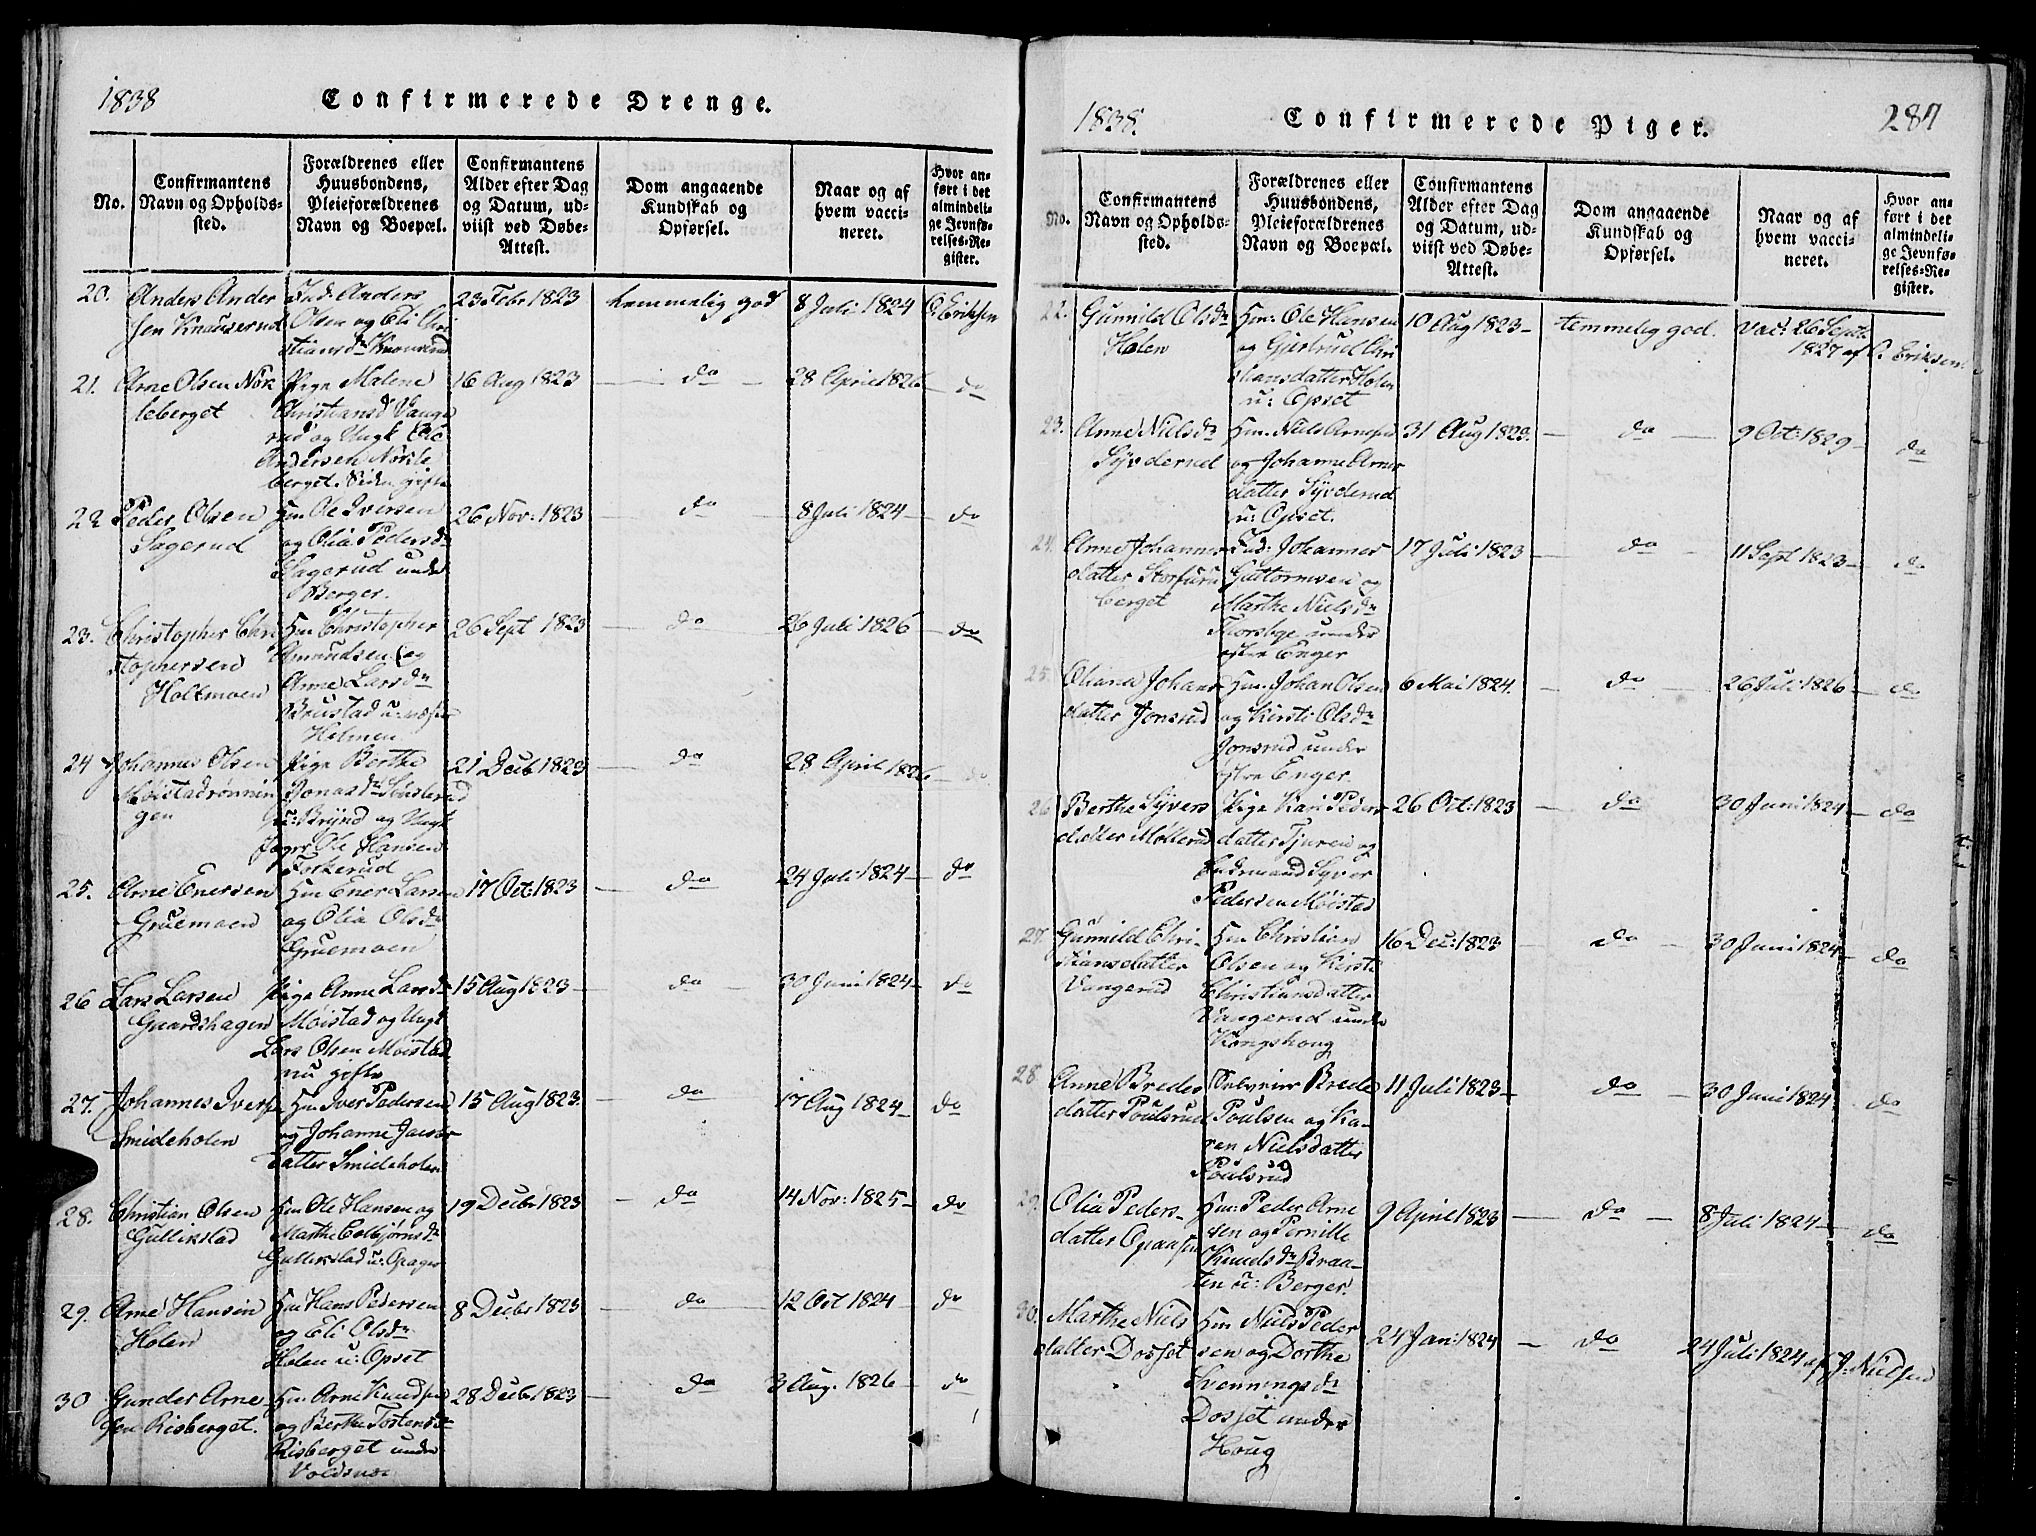 1838
Confirmerede Drenge.
No.
Confirmantens
Navn og Opholds-
sted.
Forældrenes eller
Huusbondens,
Pleieforældrenes
Navn og Boepæl.
Confirmantens
Alder efter Dag
og Datum, ud-
viist ved Døbe-
Attest.
Dom angaaende
Kundskab og
Opførsel.
Naar og af
hvem vacci-
neret.
Hvor an-
ført i det
almindeli-
ge Jevnfø-
relses-Re-
gister.
20.
Anders Ander
sen Knauserud
Ind: Anders
Olsen og Eli Chri
stiansdr
23 Febr 1823
temmelig god
8 Juli 1824
C. Eriksen
21.
Arne Olsen Nok
leberget
Pige Malene
Christiansd Vange
rud og Ungk Ole
Andersen Nokle
berget. Siden gifte
16 Aug 1823
do
28 April 1826
do
22
Peder Olsen
Sagerud
Hm Ole Iversen
og Olia Pedersdr
Sagerud under
Berger.
26 Nov: 1823
do
8 Juli 1824
do
23.
Christopher Chri
stophersen
Holtmoen
Hm Christopher
Amundsen og
Anne Larsdr
Brustad u:
Holmen
26 Sept 1823
do
26 Juli 1826
do
24
Johannes Olsen
Moistadrønnin
gen
Pige Berthe
Jonasdr
u: Brynd og Ungk
Ole Hansen
Fokerud
21 Decbr 1823
do
28 April 1826
do
25.
Arne Enersen
Gruemoen
Hm Ener Larsen
og Olia Olsdr
Gruemoen
17 Oct 1823
do
24 Juli 1824
do
26
Lars Larsen
Gaardshagen
Pige Anne Larsdr
Moistad og Ungk
Lars Olsen Moistad
nu gifte
15 Aug 1823
do
30 Juni 1824
do
27.
Johannes Iversen
Smideholen
Hm Iver Pedersen
og Johanne
datter Smideholen
15 Aug 1823
do
17 Aug 1824
do
28.
Christian Olsen
Gullikstad
Hm Ole Hansen og
Marthe Colbjørnsdr
Gullikstad u: Opager
19 Decbr 1823
do
14 Nov: 1825
do
29.
Arne Hansen
Holen
Hm Hans Pedersen
og Eli Olsdr
Holen u: Opset
8 Decbr 1823
do
12 Oct 1824
do
30
Gunder Arne
sen Risberget.
Hm Arne Knudsen
og Berthe Tostensdr
Risberget under
Voldsnæs
28 Decbr 1823
do
3 Aug. 1826
do
1838.
Confirmerede Piger.
287
No.
Confirmantens
Navn og Opholds-
sted.
Forældrenes eller
Huusbondens,
Pleieforældrenes
Navn og Boepæl.
Confirmantens
Alder efter Dag
og Datum, ud-
viist ved Døbe-
Attest.
Dom angaaende
Kundskab og
Opførsel.
Naar og af
hvem vacci-
neret.
Hvor an-
ført i det
almindeli-
ge Jevnfø-
relses-Re-
gister.
22.
Gunnild Olsdr
Holen
Hm: Ole Hansen
og Gjertrud Chri
stiansdatter Holen
u: Opset
10 Aug 1823
temmelig god.
vac: 26 Septbr
1827 af C. Eriksen
23.
Anne Nielsdr
Syverud
Hm. Niels Arnesen
og Johanne Arnes
datter Syverud
u: Opset.
31 Aug 1823.
do
9 Oct: 1829
do
24.
Anne Johannes
datter Storfuru
berget
Ind: Johannes
Guttormsen og
Marthe Nielsdr
under
østre Enger
17 Juli 1823
do
11 Sept 1823
do
25.
Oliana Johans
datter Jonsrud
Hm. Johan Olsen
og Kirsti Olsdr
Jonsrud under
østre Enger.
6 Mai 1824.
do
26 Juli 1826
do
26
Berthe Syvers
datter Møllerud
Pige Kari Peders
datter Tjuren og
Syver
Pedersen Moistad
26 Oct: 1823
do
30 Juni 1824
do
27.
Gunnild Chri-
stiansdatter
Vangerud
Hm Christian
Olsen og Kirsti
Christiansdatter
Vangerud under
Kongshoug
16 Dec: 1823
do
30 Juni 1824
do
28
Anne Bredes
datter Poulsrud
Selveier Brede
Poulsen og Ka-
ren Nielsdatter
Poulsrud
11 Juli 1823
do
30 Juni 1824
do
29.
Olia Peders-
datter Opaasen
Hm: Peder Arne
sen og Pernille
Knudsdr Braa-
ten u: Berger.
9 April 1823
do
8 Juli 1824
do
30.
Marthe Niels
datter Dosset
Hm Niels Peder
sen og Dorthe
Svenningsdr
Dosset under
Houg
24 Jan: 1824
do
24 Juli 1824 af J. Nielsen